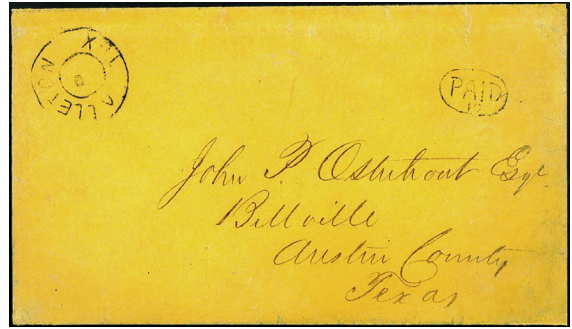 ALLETON TEX
8
PAID
10
John P. Osterhout Esqr.
Bellville
Austin County
Texas